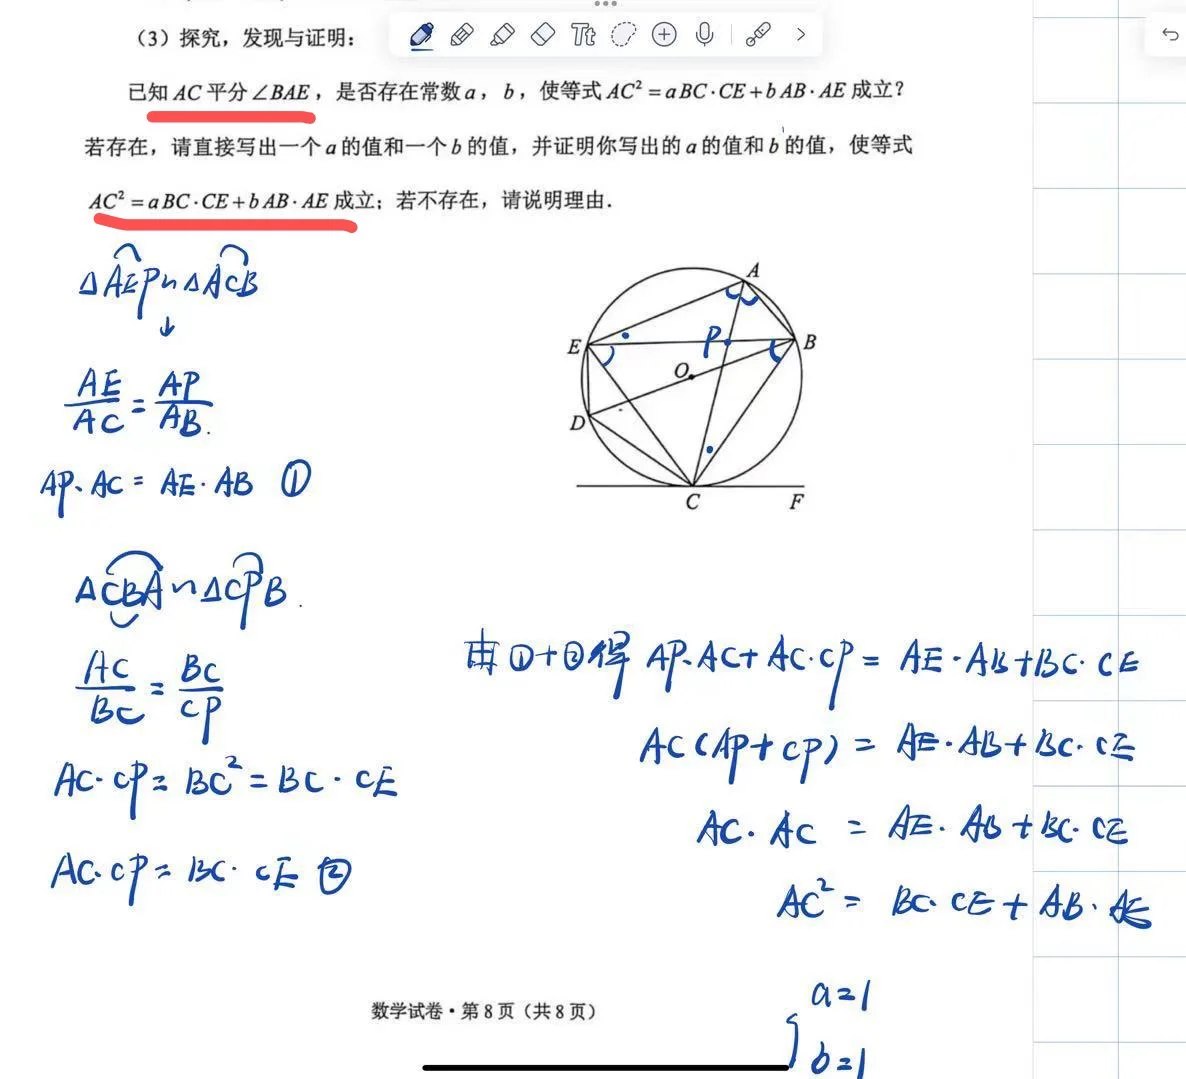 （3）探究，发现与证明：
Tt
已知 AC 平分∠BAE，是否存在常数 a，b，使等式 AC² = a BC · CE + b AB · AE 成立？
若存在，请直接写出一个 a 的值和一个 b 的值，并证明你写出的 a 的值和 b 的值，使等式
AC² = a BC · CE + b AB · AE 成立；若不存在，请说明理由.
△AEP∽△ACB
↓
AE/AC = AP/AB.
AP·AC = AE·AB ①
A
E
P
B
O
D
C
F
△CBA∽△CPB.
AC/BC = BC/CP
AC·CP = BC² = BC·CE
AC·CP = BC·CE ②
由①+②得 AP·AC+AC·CP = AE·AB+BC·CE
AC(AP+CP) = AE·AB+BC·CE
AC·AC = AE·AB+BC·CE
AC² = BC·CE+AB·AE
a=1
b=1
数学试卷·第 8 页（共 8 页）